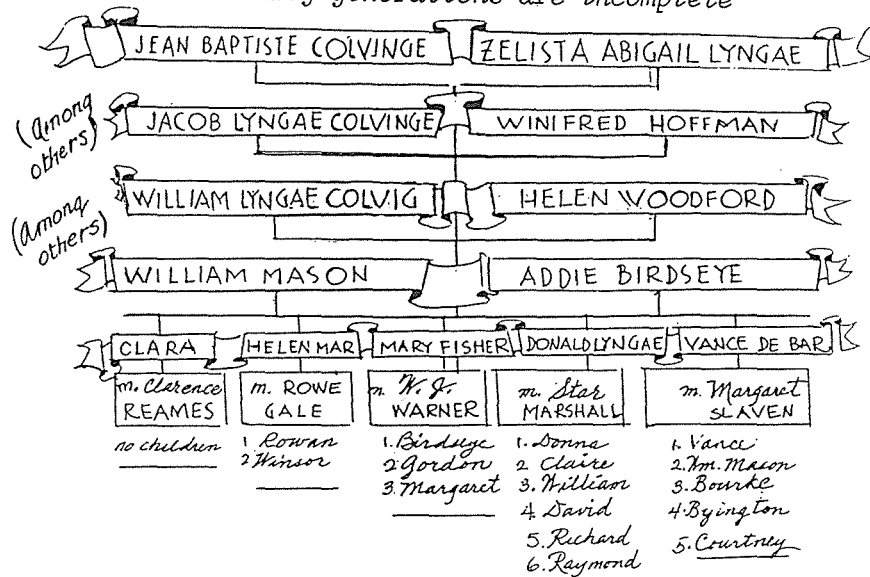 generations are incomplete
JEAN BAPTISTE COLVINGE ZELISTA ABIGAIL LYNGAE
(among others)
JACOB LYNGAE COLVINGE WINIFRED HOFFMAN
(among others)
WILLIAM LYNGAE COLVIG HELEN WOODFORD
WILLIAM MASON ADDIE BIRDSEYE
CLARA HELEN MAR MARY FISHER DONALD LYNGAE VANCE DE BAR
m. Clarence REAMES
no children
m. ROWE GALE
1 Rowan
2 Winsor
m. W. J. WARNER
1. Birdseye
2. Gordon
3. Margaret
m. Star MARSHALL
1. Donna
2 Claire
3. William
4. David
5. Richard
6. Raymond
m. Margaret SLAVEN
1. Vance
2. Wm. Mason
3. Bourke
4. Byington
5. Courtney